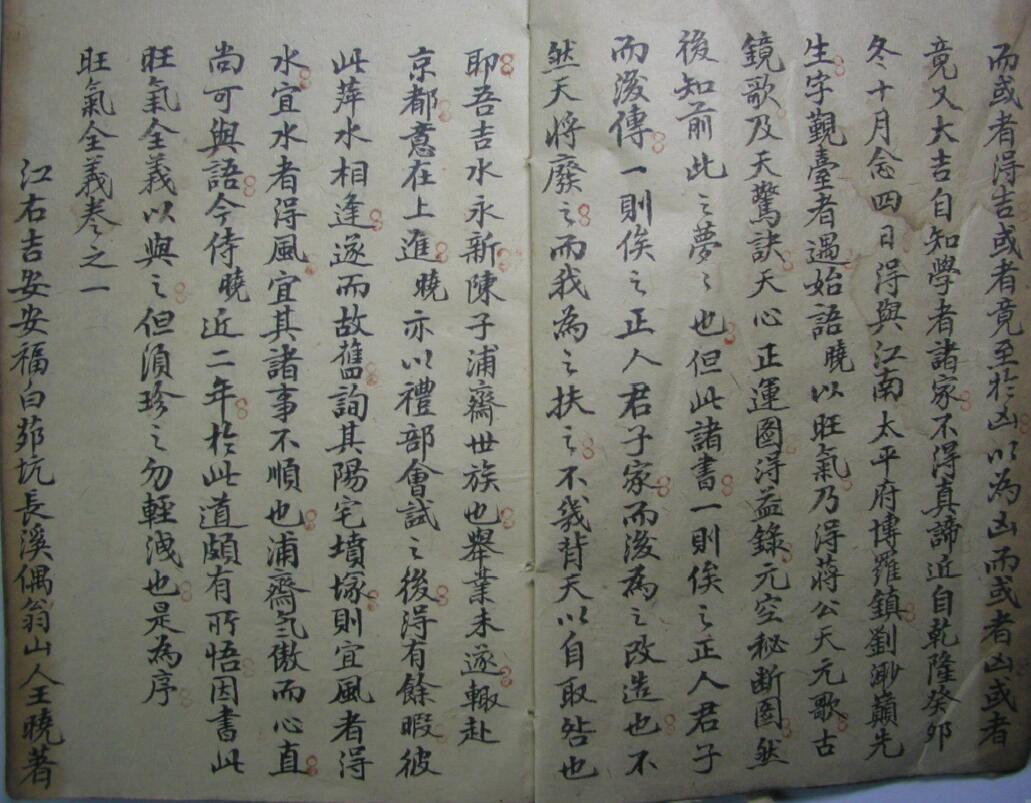 而或者得吉或者竟至於凶以為凶而或者凶或者
竟又大吉自知學者諸家不得真諦近自乾隆癸卯
冬十月念四日得與江南太平府博羅鎮劉渺巔先
生字觀臺者遇始語曉以旺氣乃得蔣公天元歌古
鏡歌及天驚訣天心正運图得益錄元空秘断图然
後知前此之夢之也但此諸書一則俟之正人君子
而後傳一則俟之正人君子家而後為之改造也不
然天將廢之而我為之扶之不幾背天以自取咎也
耶吾吉水永新陳子浦齋世族也舉業未遂輙赴
京都意在上進曉亦以禮部會試之後得有餘暇彼
此萍水相逢遂而故舊詢其陽宅墳塚則宜風者得
水宜水者得風宜其諸事不順也浦齋氣傲而心直
尚可與語今侍曉近二年於此道頗有所悟因書此
旺氣全義以與之但須珍之勿輕洩也是為序
旺氣全義卷之一
江右吉安安福白茆坑長溪偶翁山人王曉著